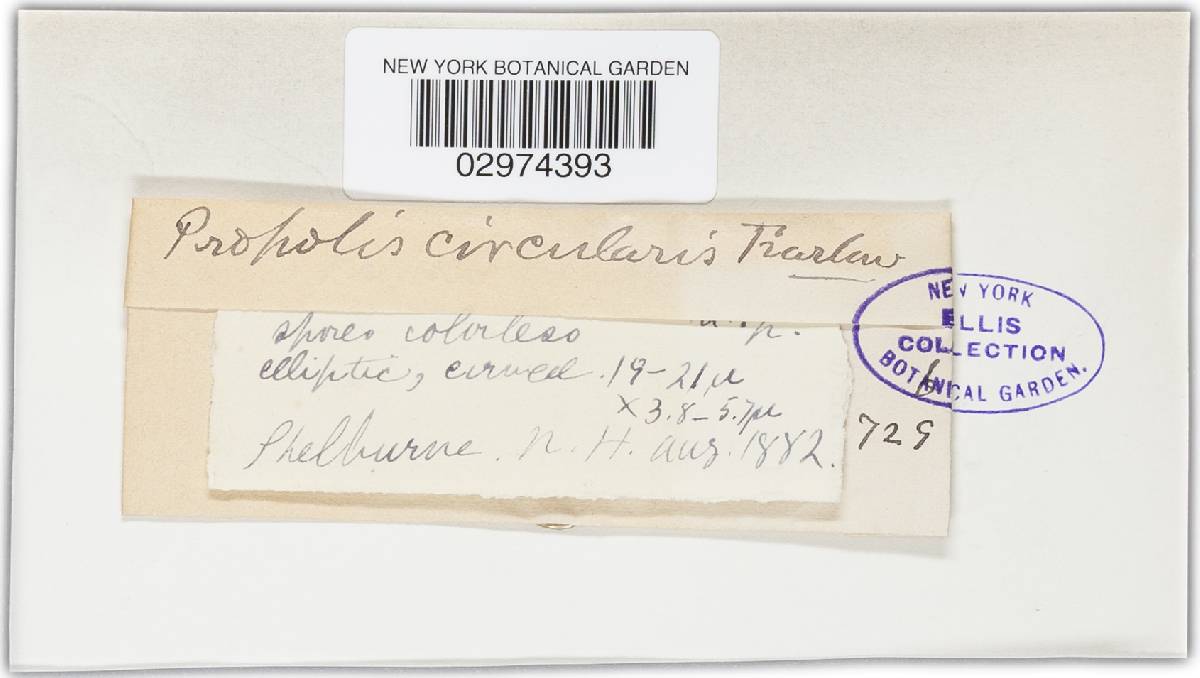 NEW YORK BOTANICAL GARDEN
02974393
Propolis circularis Farlow
spores colorless n. sp.
elliptic, curved. 19-21µ
×3.8-5.7µ
Shelburne. N. H. Aug. 1882.
729
NEW YORK
ELLIS
COLLECTION
BOTANICAL GARDEN.